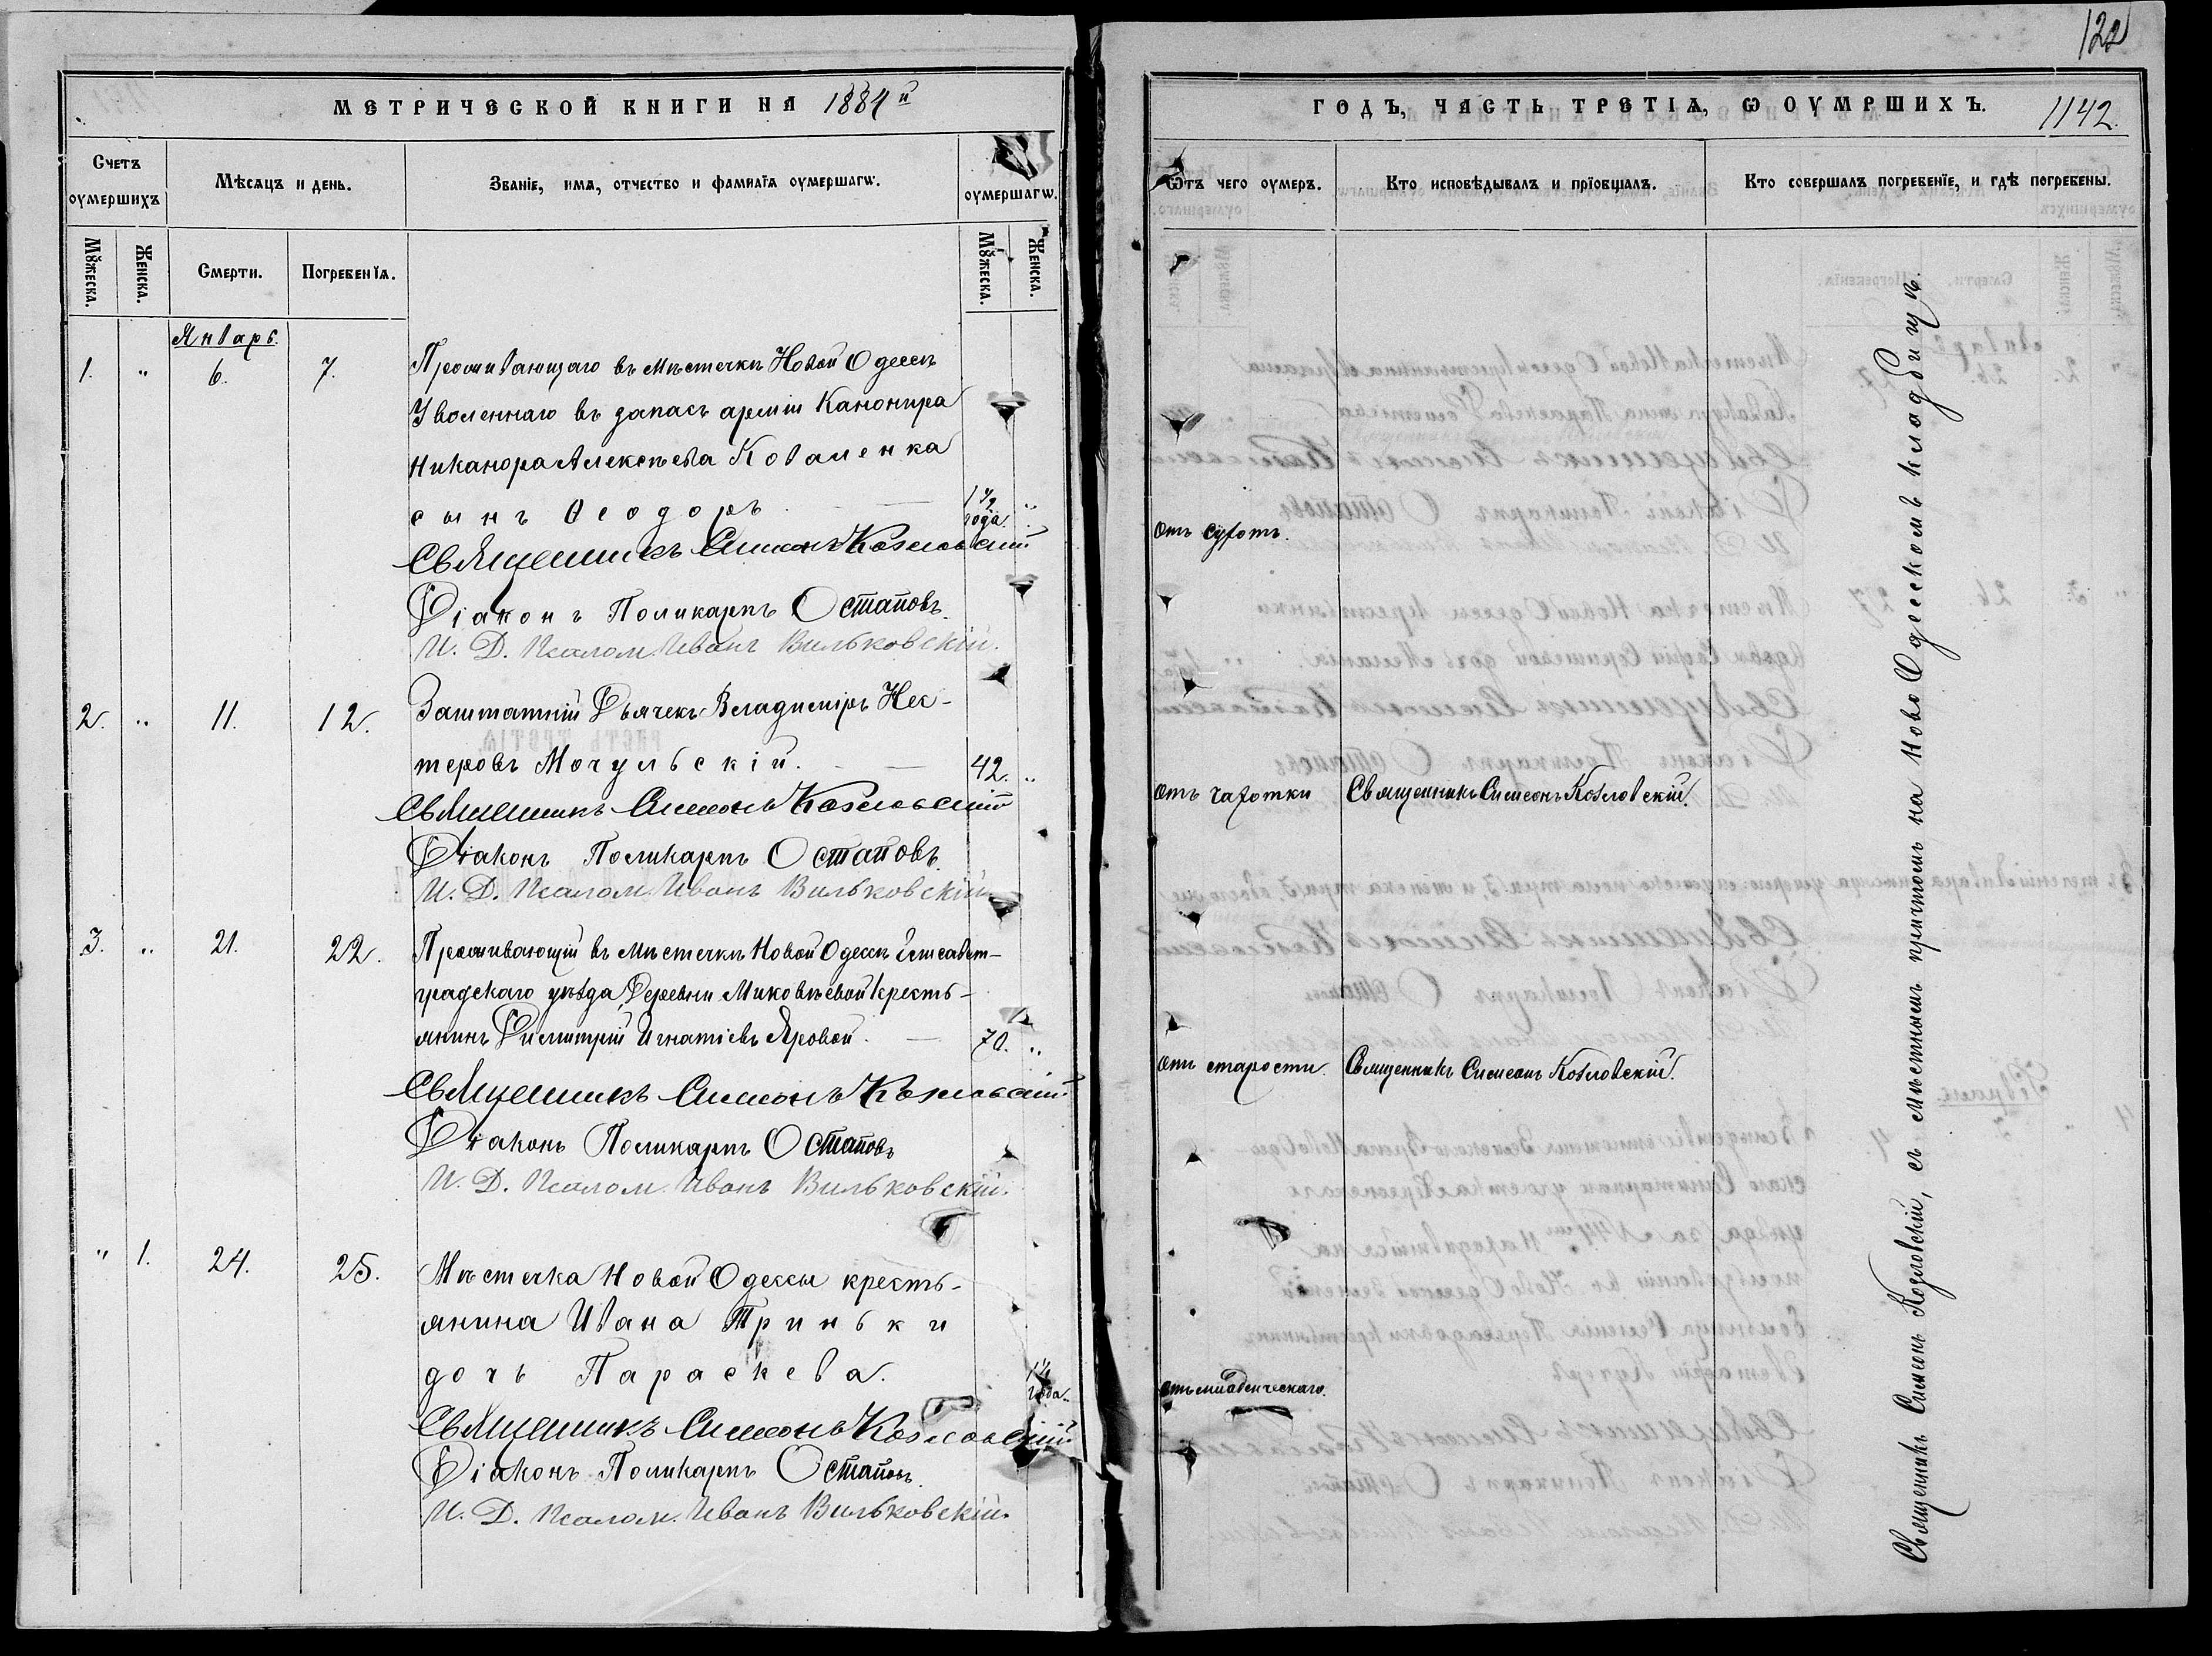 МЕТРИЧЕСКОЙ КНИГИ НА 1884 й
Счетъ оумершихъ
Мѣсяцъ и день.
Званіе, имя, отчество и фамилія оумершагѡ.
оумершагѡ.
Мꙋжеска.
Женска.
Смерти.
Погребенія.
Мꙋжеска.
Женска.
Январь.
1. " 6. 7. Проживающаго въ мѣстечкѣ Новой Одессѣ
Уволеннаго въ запасъ арміи Канонира
Никанора Алексѣева Коваленка
сынъ Ѳеодоръ. — 1 1/2 года. "
Священникъ Симеонъ Козловскій
Діаконъ Поликарпъ Остаповъ.
И. Д. Псалом. Иванъ Вильковскій.
2. " 11. 12. Заштатній Дьячекъ Владиміръ Нес-
теровъ Мочульскій. — 42. "
Священникъ Симеонъ Козловскій
Діаконъ Поликарпъ Остаповъ.
И. Д. Псалом. Иванъ Вильковскій.
3. " 21. 22. Проживающій въ мѣстечкѣ Новой Одессѣ Елисавет-
градскаго уѣзда, Деревни Миковѣевой кресть-
янинъ Димитрій Игнатіевъ Яровой. — 70. "
Священникъ Симеонъ Козловскій
Діаконъ Поликарпъ Остаповъ
И. Д. Псалом. Иванъ Вильковскій.
" 1. 24. 25. Мѣстечка Новой Одессы кресть-
янина Ивана Триньки
дочь Параскева. 1 1/2 года.
Священникъ Симеонъ Козловскій
Діаконъ Поликарпъ Остаповъ
И. Д. Псалом. Иванъ Вильковскій.
122
ГОДЪ, ЧАСТЬ ТРЕТІЯ, Ѡ ОУМРШИХЪ. 1142.
Ѿтъ чего оумеръ.
Кто исповѣдывалъ и пріобщалъ.
Кто совершалъ погребеніе, и гдѣ погребены.
Отъ сухотъ.
Отъ чахотки Священникъ Симеонъ Козловскій.
Отъ старости Священникъ Симеонъ Козловскій.
Отъ младенческаго.
Священникъ Симеонъ Козловскій, съ мѣстнымъ причтомъ на Ново Одесскомъ кладбищѣ.